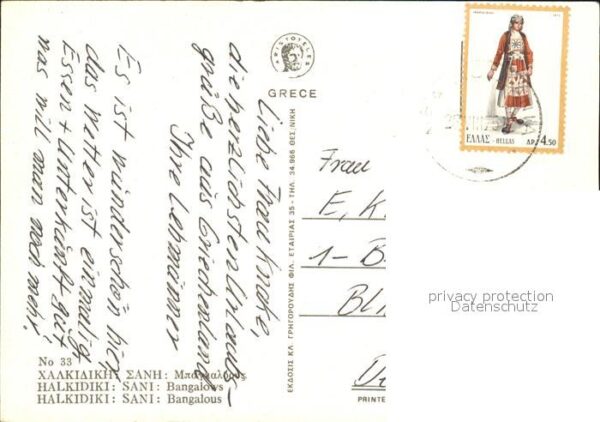 ARISTOTELES
GREECE
Liebe Frau
die herzlichsten Urlaubs-
grüße aus Griechenland
Ihre
Es ist wunderschön hier
das Wetter ist einmalig
Essen + Unterkunft gut,
was will man noch mehr!
Frau
E. K
1- B
No 33
ΧΑΛΚΙΔΙΚΗ: ΣΑΝΗ: Μπαγκαλόους
HALKIDIKI: SANI: Bangalows
HALKIDIKI: SANI: Bangalous
ΕΚΔΟΣΙΣ ΚΛ. ΓΡΗΓΟΡΟΥΔΗΣ ΦΙΛ. ΕΤΑΙΡΙΑΣ 35 - ΤΗΛ. 34.966 ΘΕΣ/ΝΙΚΗ
PRINTE
ΕΛΛΑΣ - HELLAS ΔΡ. 4.50
privacy protection
Datenschutz